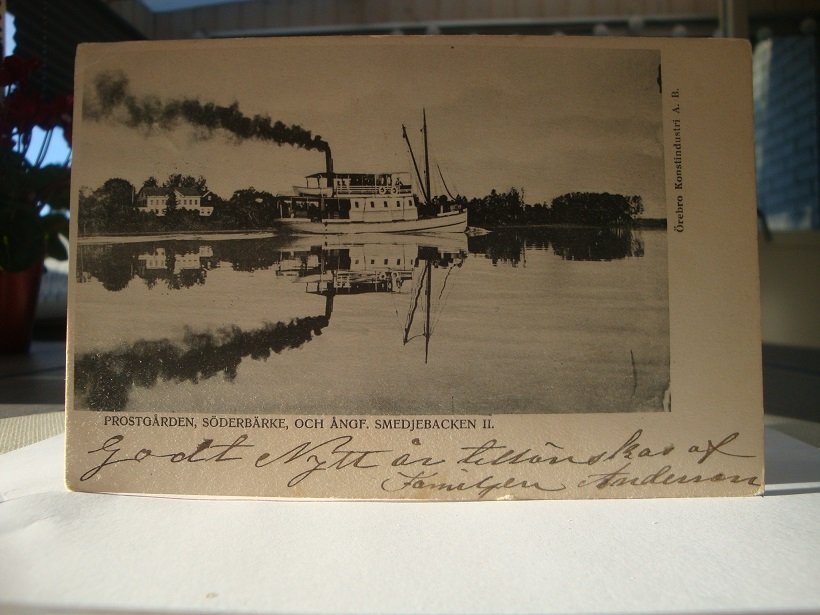 Örebro Konstindustri A. B.
PROSTGÅRDEN, SÖDERBÄRKE, OCH ÅNGF. SMEDJEBACKEN II.
Godt Nytt år tillönskas af
Familjen Anderson